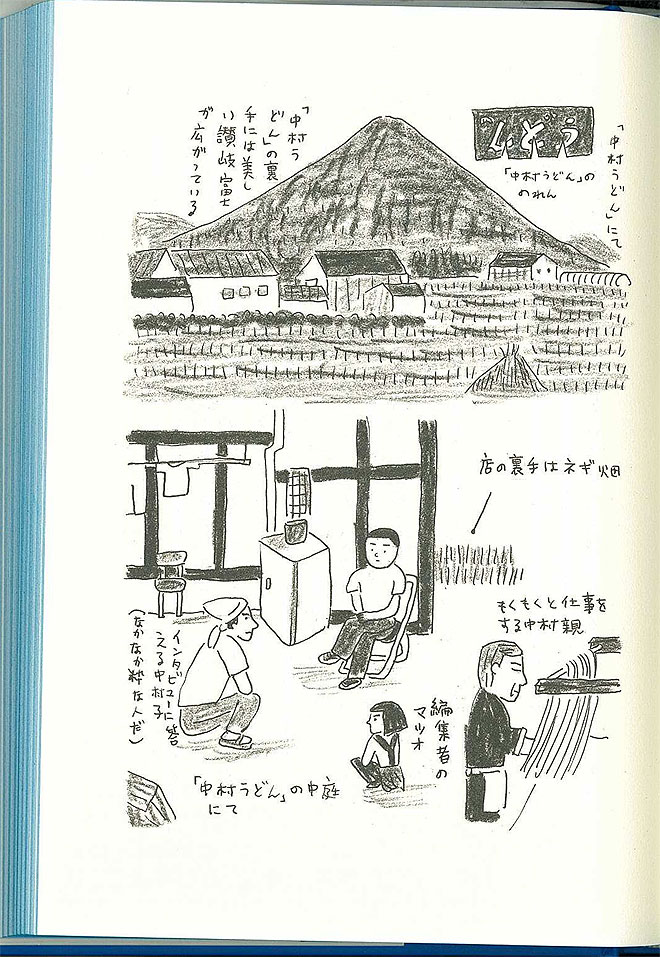 「中村うどん」にて
うどん
「中村うどん」の
のれん
「中村う
どん」の裏
手には美し
い讃岐富士
が広がっている
店の裏手はネギ畑
もくもくと仕事を
する中村親
インタビューに答
える中村子
（なかなか粋な人だ）
編集者の
マツオ
「中村うどん」の中庭
にて